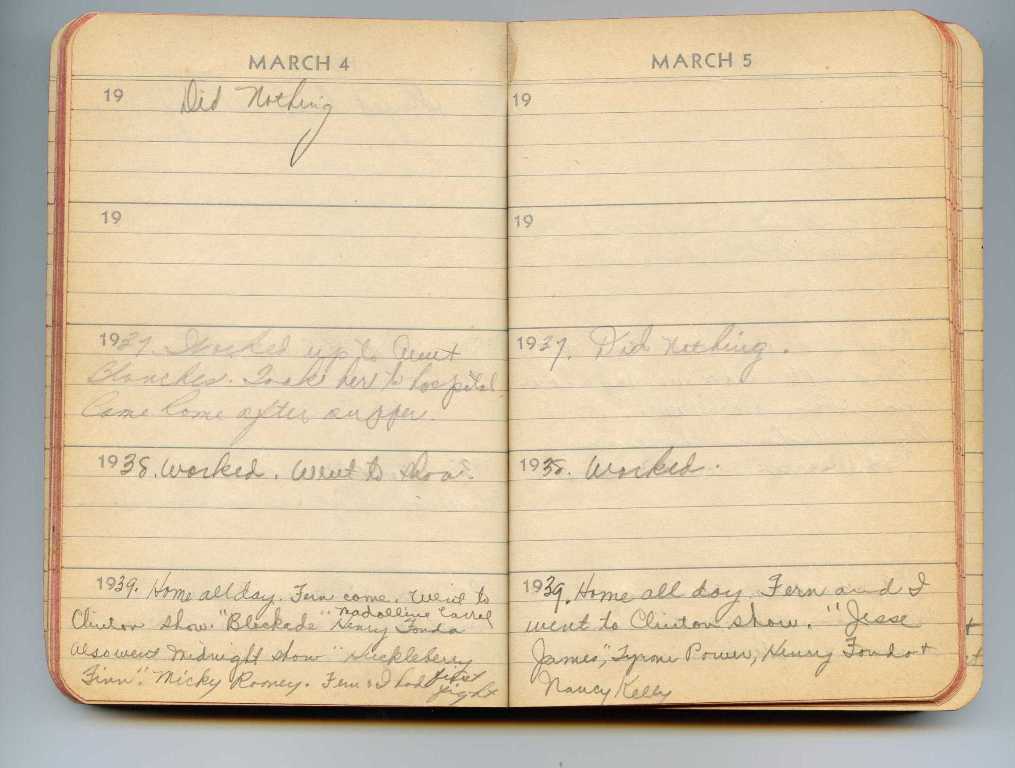 MARCH 4
19 Did Nothing
19
1937. Worked up to Aunt
Blanches. Took her to hospital.
Came home after supper.
1938. Worked. Went to show.
1939. Home all day. Fern come. Went to
Clinton show. "Blockade" Madalline Carrol
Henry Fonda
Also went Midnight show "Huckleberry
Finn". Micky Rooney. Fern & I had first
fight
MARCH 5
19
19
1937. Did nothing.
1938. Worked.
1939. Home all day. Fern and I
went to Clinton show. "Jesse
James," Tyrone Power, Henry Fonda +
Nancy Kelly